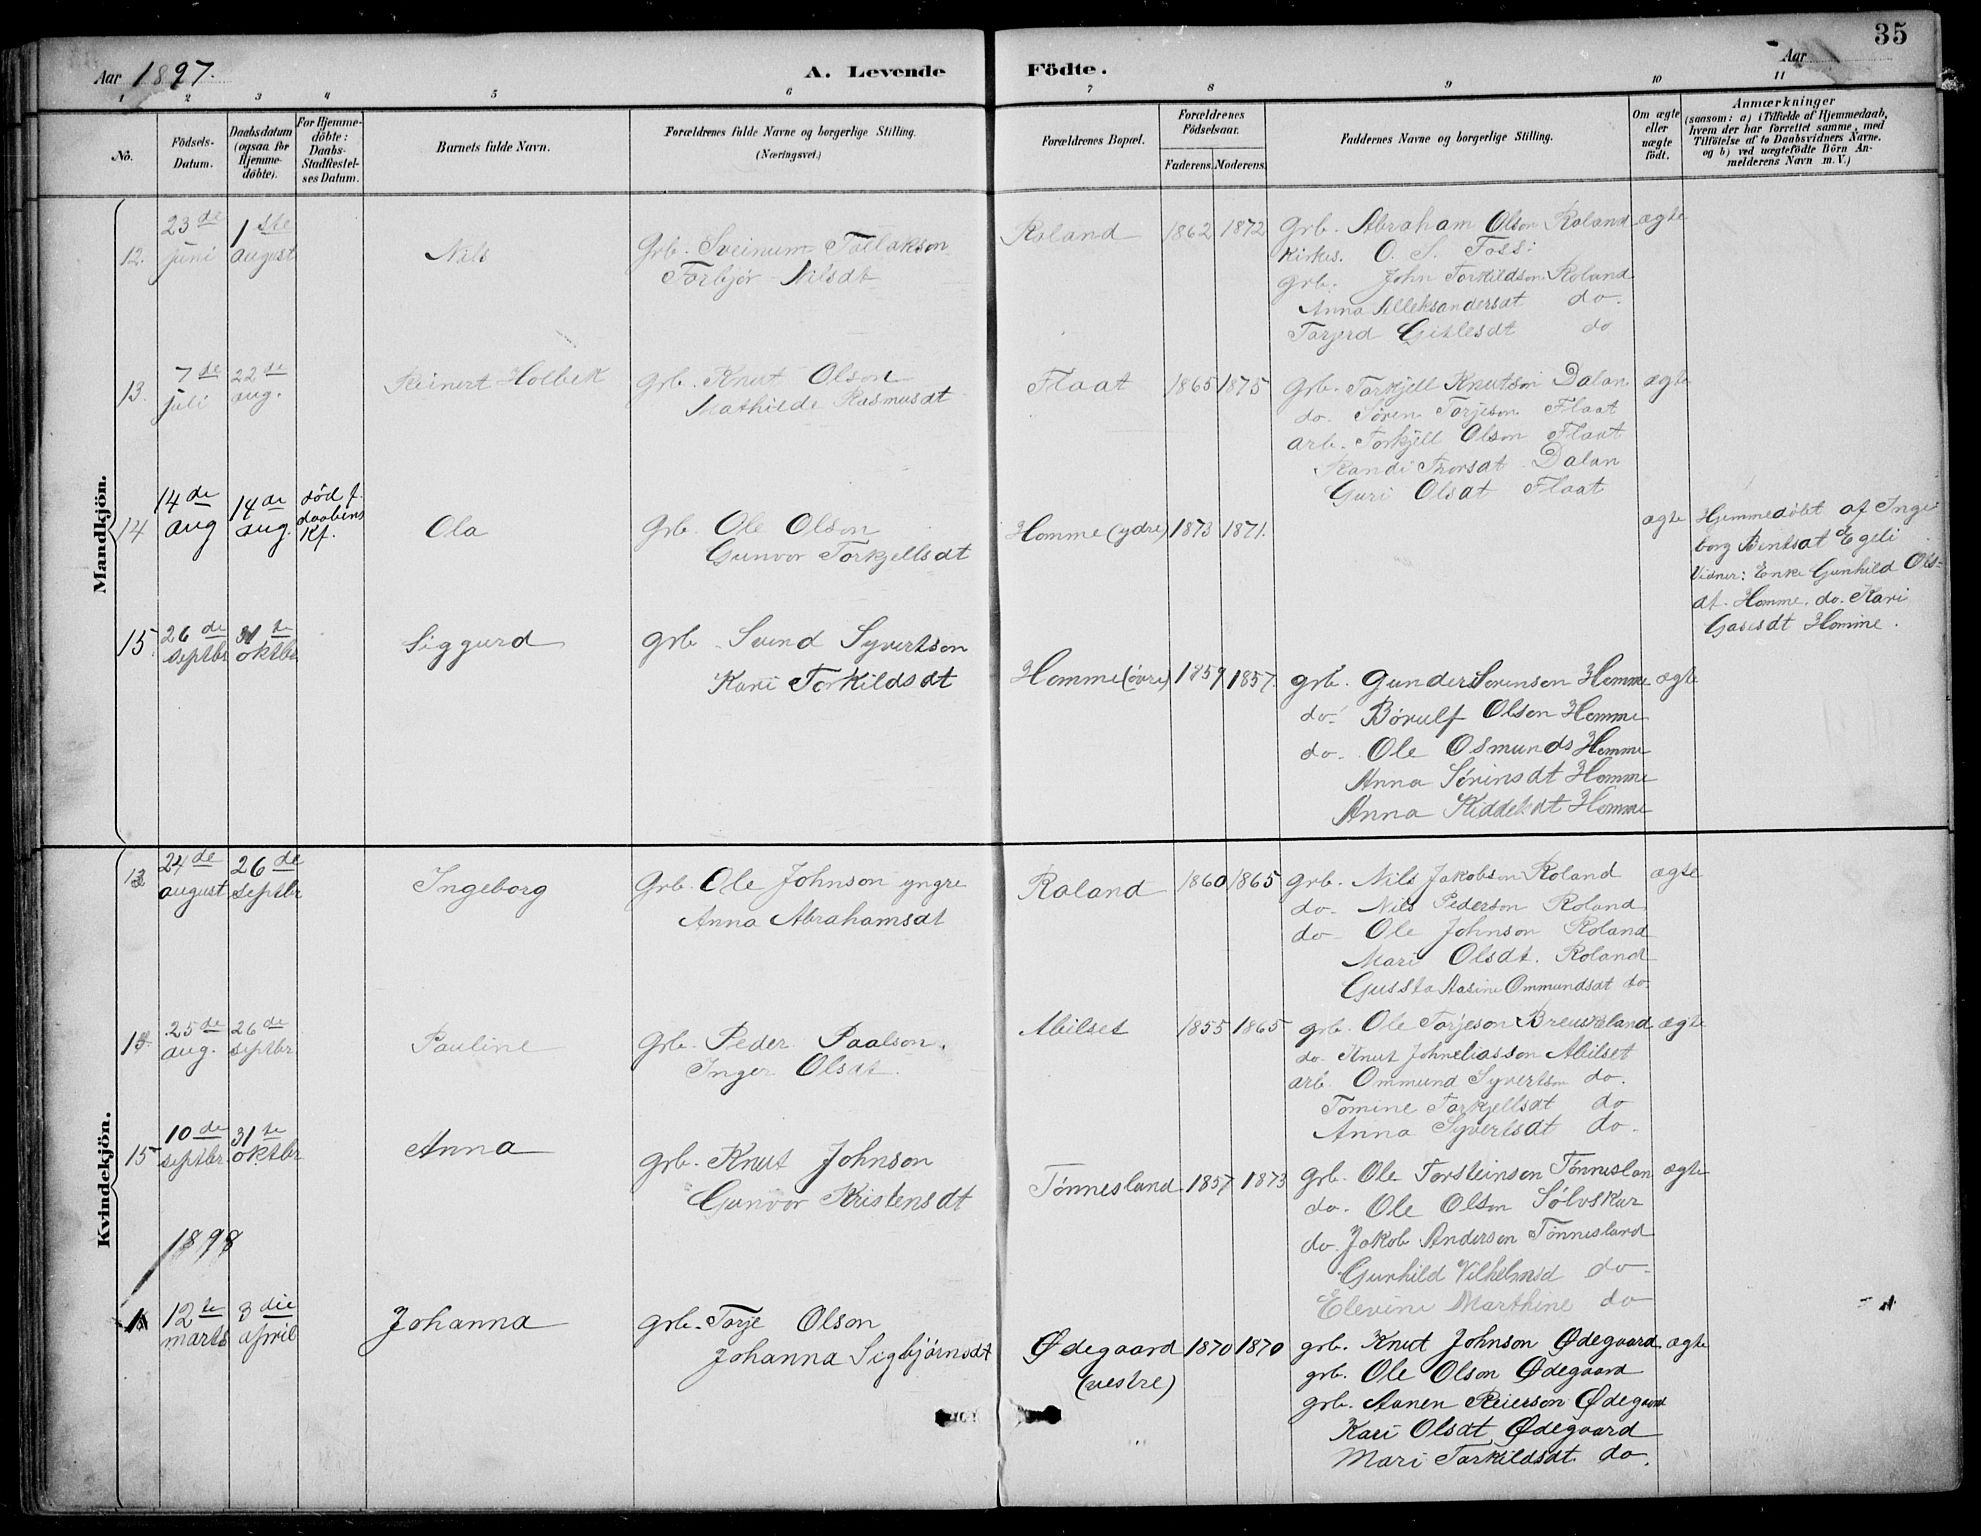 35
Aar 1897.
A. Levende Födte.
Aar
1 2 3 4 5 6 7 8 9 10 11
No.
Födsels-Datum.
Daabsdatum (ogsaa for Hjemmedöbte).
For Hjemmedöbte: Daabs-Stadfæstelses Datum.
Barnets fulde Navn.
Forældrenes fulde Navne og borgerlige Stilling.
(Næringsvei.)
Forældrenes Bopæl.
Forældrenes Födselsaar.
Faderens. Moderens.
Faddernes Navne og borgerlige Stilling.
Om ægte eller uægte födt.
Anmærkninger
(saasom: a) i Tilfælde af Hjemmedaab, hvem der har forrettet samme, med Tilföielse af to Daabsvidners Navne. og b) ved uægtefödte Börn Anmelderens Navn m. V.)
Mandkjön.
12. 23de juni 1ste august Nils
Grb. Sveinum Tallakson
Torbjør Nilsdt
Roland 1862 1872
Grb. Abraham Olson Roland ægte
Kirkes. O. S. Foss
grb. John Torkildson Roland
Anna Alleksandersdt do.
Targerd Gitlesdt do
13. 7de juli 22de aug. Reinert Holbek
grb. Knut Olson
Mathilde Rasmusdt
Flaat 1865 1875
Grb. Torkjell Knutson Dalan ægte
do. Søren Torjeson Flaat
arb. Torkjell Olson Flaat
Randi Thorsdt Dalan
Guri Olsdt Flaat
14 14de aug 14de aug. død f. daabens Kf. Ola
Grb. Ole Olson
Gunvor Torkjellsdt
Homme (ydre) 1873 1871. ægte
Hjemmedøbt af Inge
borg Bentsdt Egeli
Vidner: Enke Gunhild Ols-
dt. Homme. do. Kari
Homme.
15. 26de septbr 31te oktbr Siggurd
grb. Svend Syvertson
Kari Torkildsdt
Homme (øvre) 1859 1857.
grb. Gunder Sørensen Homme ægte
do. Børulf Olson Homme
do. Ole Osmunds Homme
Anna Sørinsdt Homme
Anna Kiddelsdt Homme
Kvindekjön.
13 24de august 26de septbr Ingeborg
Grb. Ole Johnson yngre
Anna Abrahamsdt
Roland 1860 1865
grb. Nils Jakobson Roland ægte
do. Nils Pederson Roland
do Ole Johnson Roland
Mari Olsdt. Roland
Gussta Aasine Ommundsdt do
14. 25de aug. 26de septbr Pauline
grb. Peder Paalson.
Inger Olsdt.
Abilset 1855 1865
grb. Ole Torjeson Breuskeland ægte
do. Knut Johneliasson Abilset
arb. Ommund Syvertson do.
Tomine Torkjellsdt do
Anna Syvertsdt do.
15 10de septbr. 31te oktbr Anna
grb. Knut Johnson
Gunvor Kristensdt
Tønnesland 1857 1873
grb. Ole Torsteinson Tønneslan ægte
do. Ole Olson Sølvskar
do. Jakob Anderson Tønnesland
Gunhild Vilhelmsd do
Elevine Marthine do
1898
1 12te marts 3die april Johanna
grb. Torje Olson
Johanna Sigbjørnsdt
Ødegaard 1870 1870
(vestre)
grb. Knut Johnson Ødegaard. ægte
grb. Ole Olson Ødegaard
grb. Aanen Reierson Ødegaard
Kari Olsdt Ødegaard
Mari Torkildsdt. do.